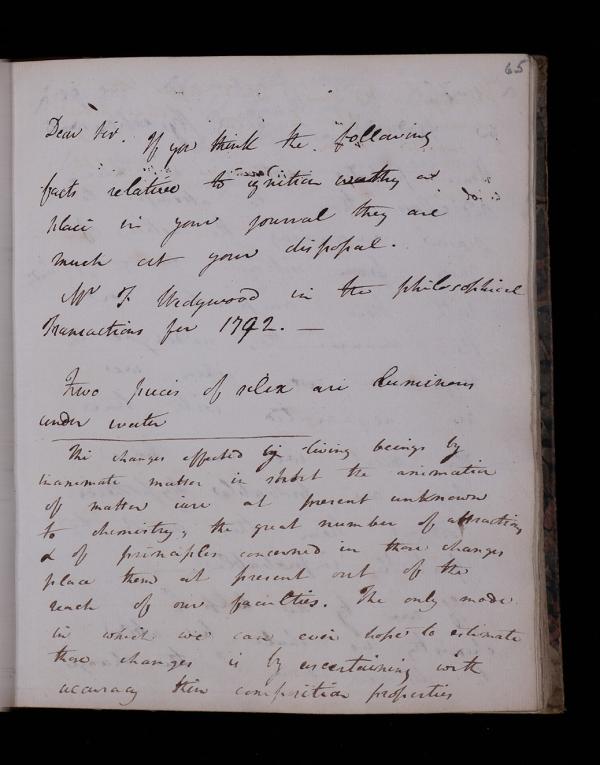 65
Dear Sir. If you think the following
facts relative to ignition worthy a
place in your journal they are
much at your disposal.
Mr T Wedgwood in the philosophical
Transactions for 1792. —
Two pieces of silex are luminous
under water
The changes effected by living beings by
inanimate matter in short the animation
of matter are at present unknown
to chemistry, the great number of attractions
& of principles concerned in those changes
place them at present out of the
reach of our faculties. The only mode
in which we can ever hope to estimate
those changes is by ascertaining with
accuracy their composition properties